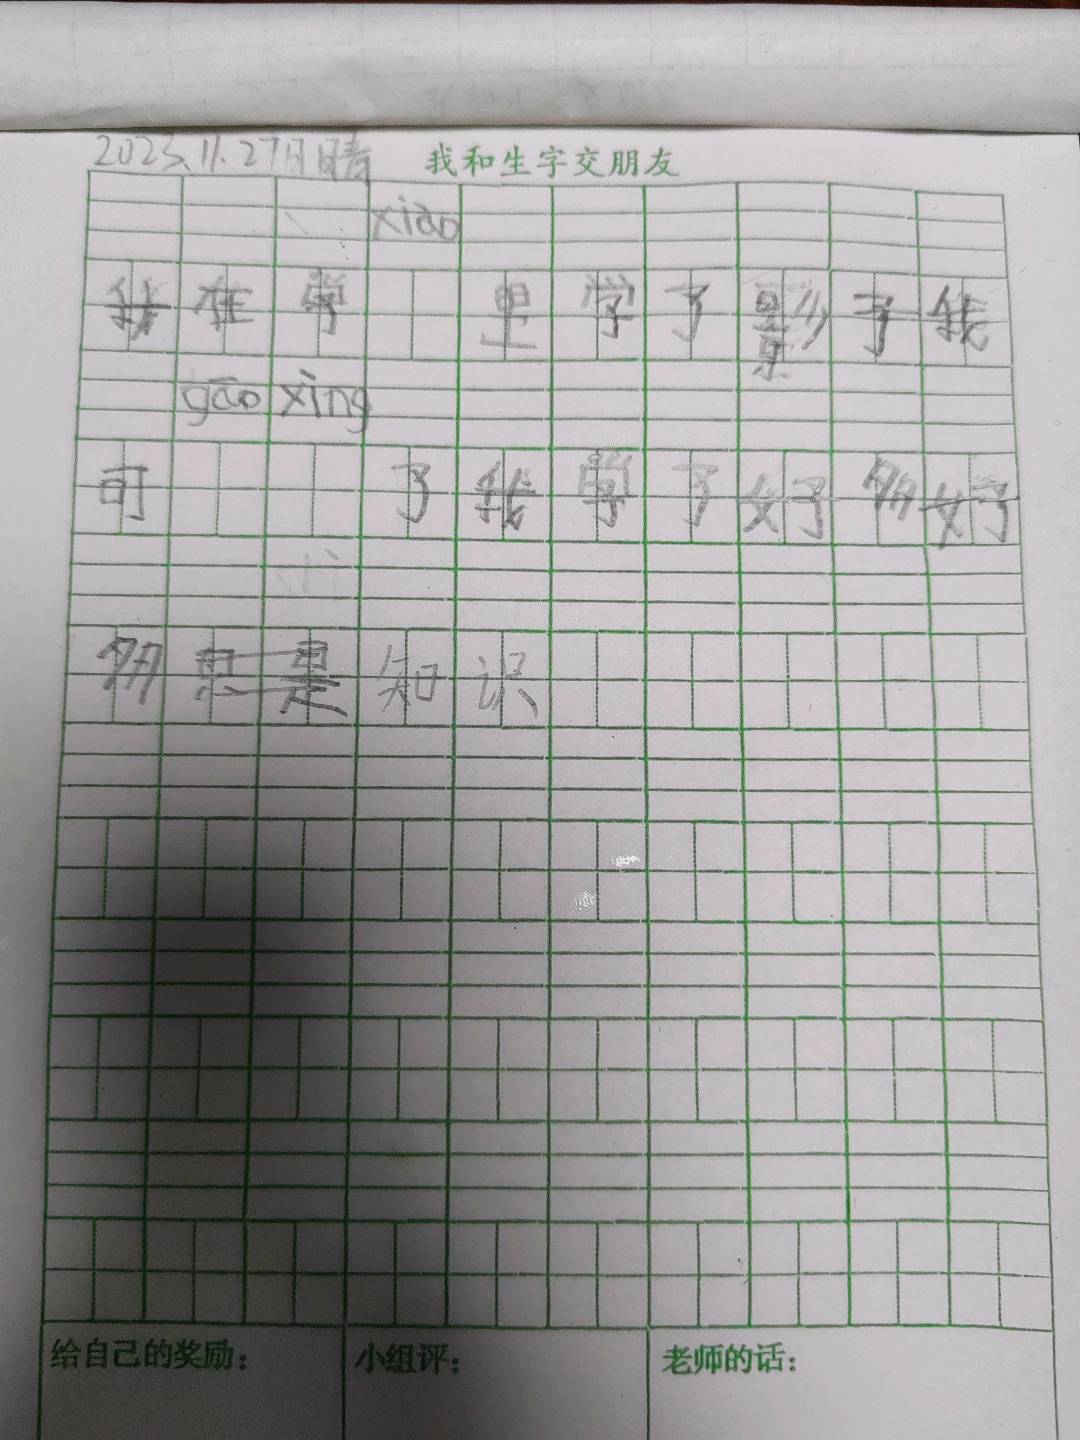 2023.11.27日晴 我和生字交朋友
xiao
我在学 里学了影子我
gāo xìng
可 了我学了好多好
多 知识
给自己的奖励： 小组评： 老师的话：